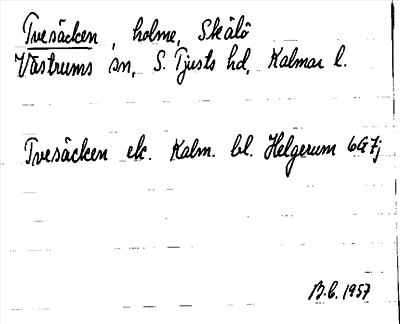 Tvesäcken, holme, Skälö
Västrums sn, S. Tjusts hd, Kalmar l.
Tvesäcken ek. Kalm. bl. Helgerum 6G 7j
B.C. 1957